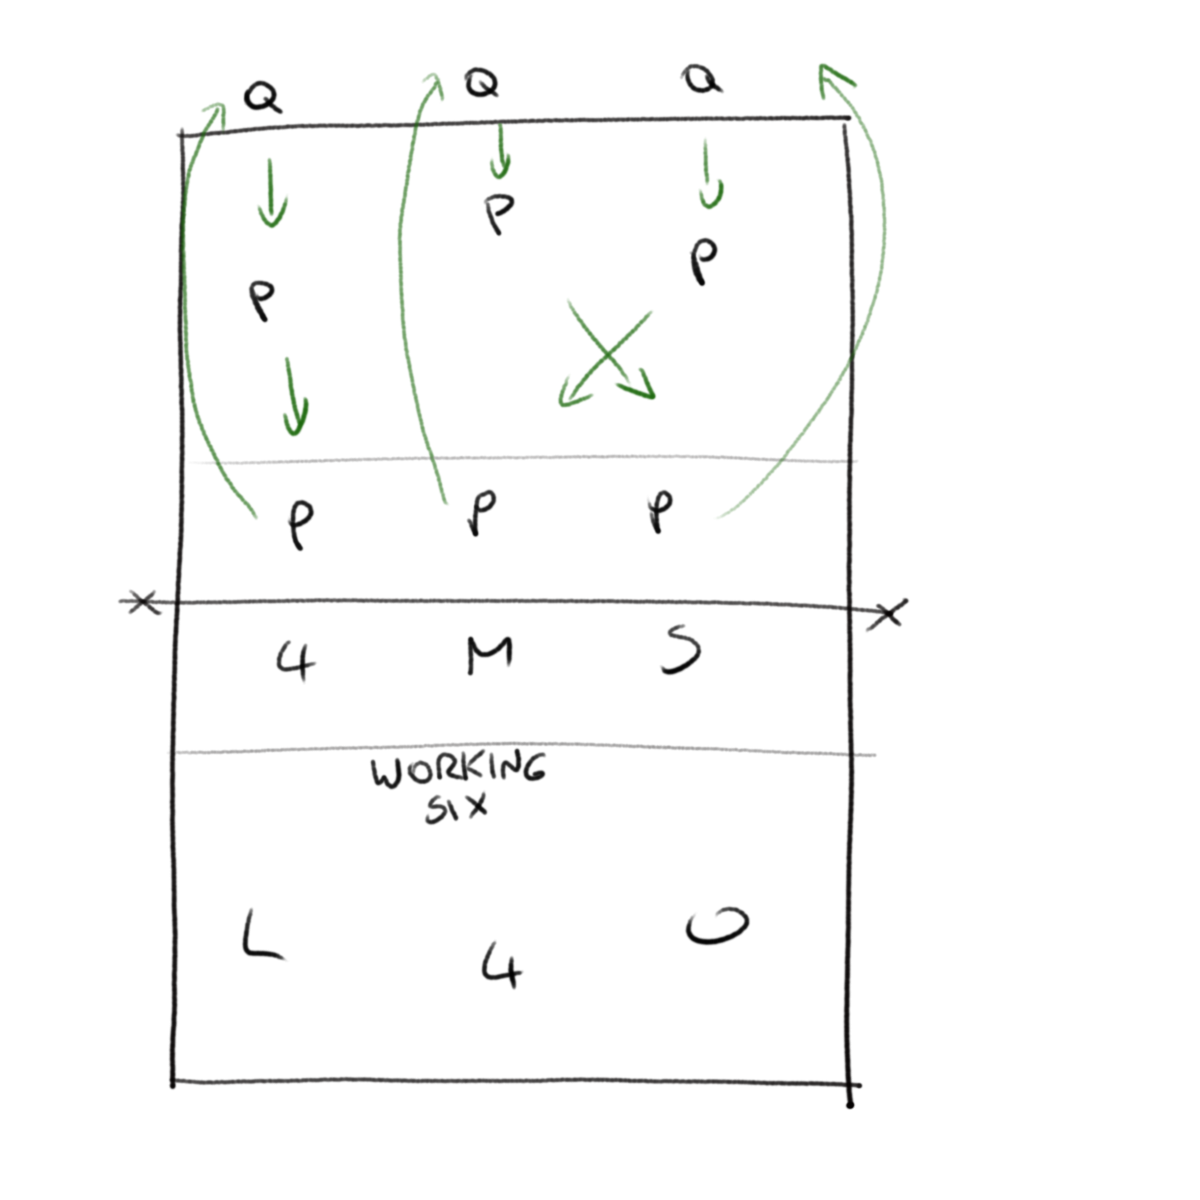 Q Q Q
P
P
P
P P P
4 M S
WORKING
SIX
L 4 O